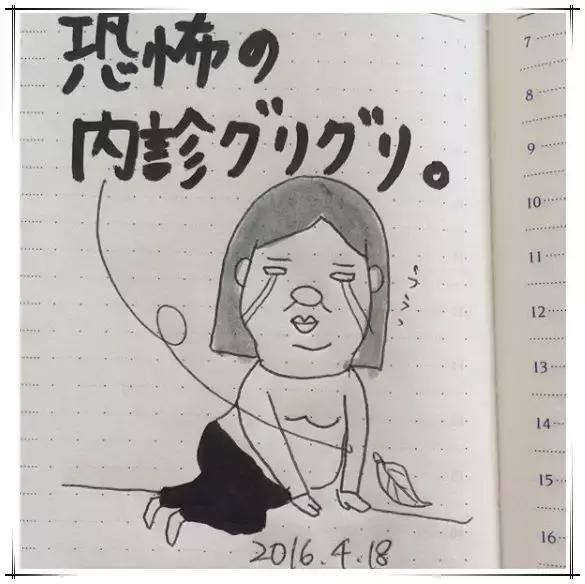 恐怖の
内診グリグリ。
2016.4.18
7
8
9
10
11
12
13
14
15
16